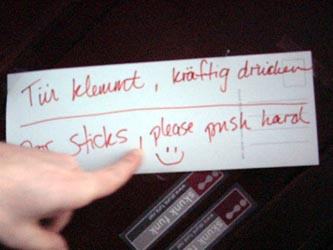 Tür klemmt, kräftig drücken
sticks, please push hard
skunk funk
skunk funk